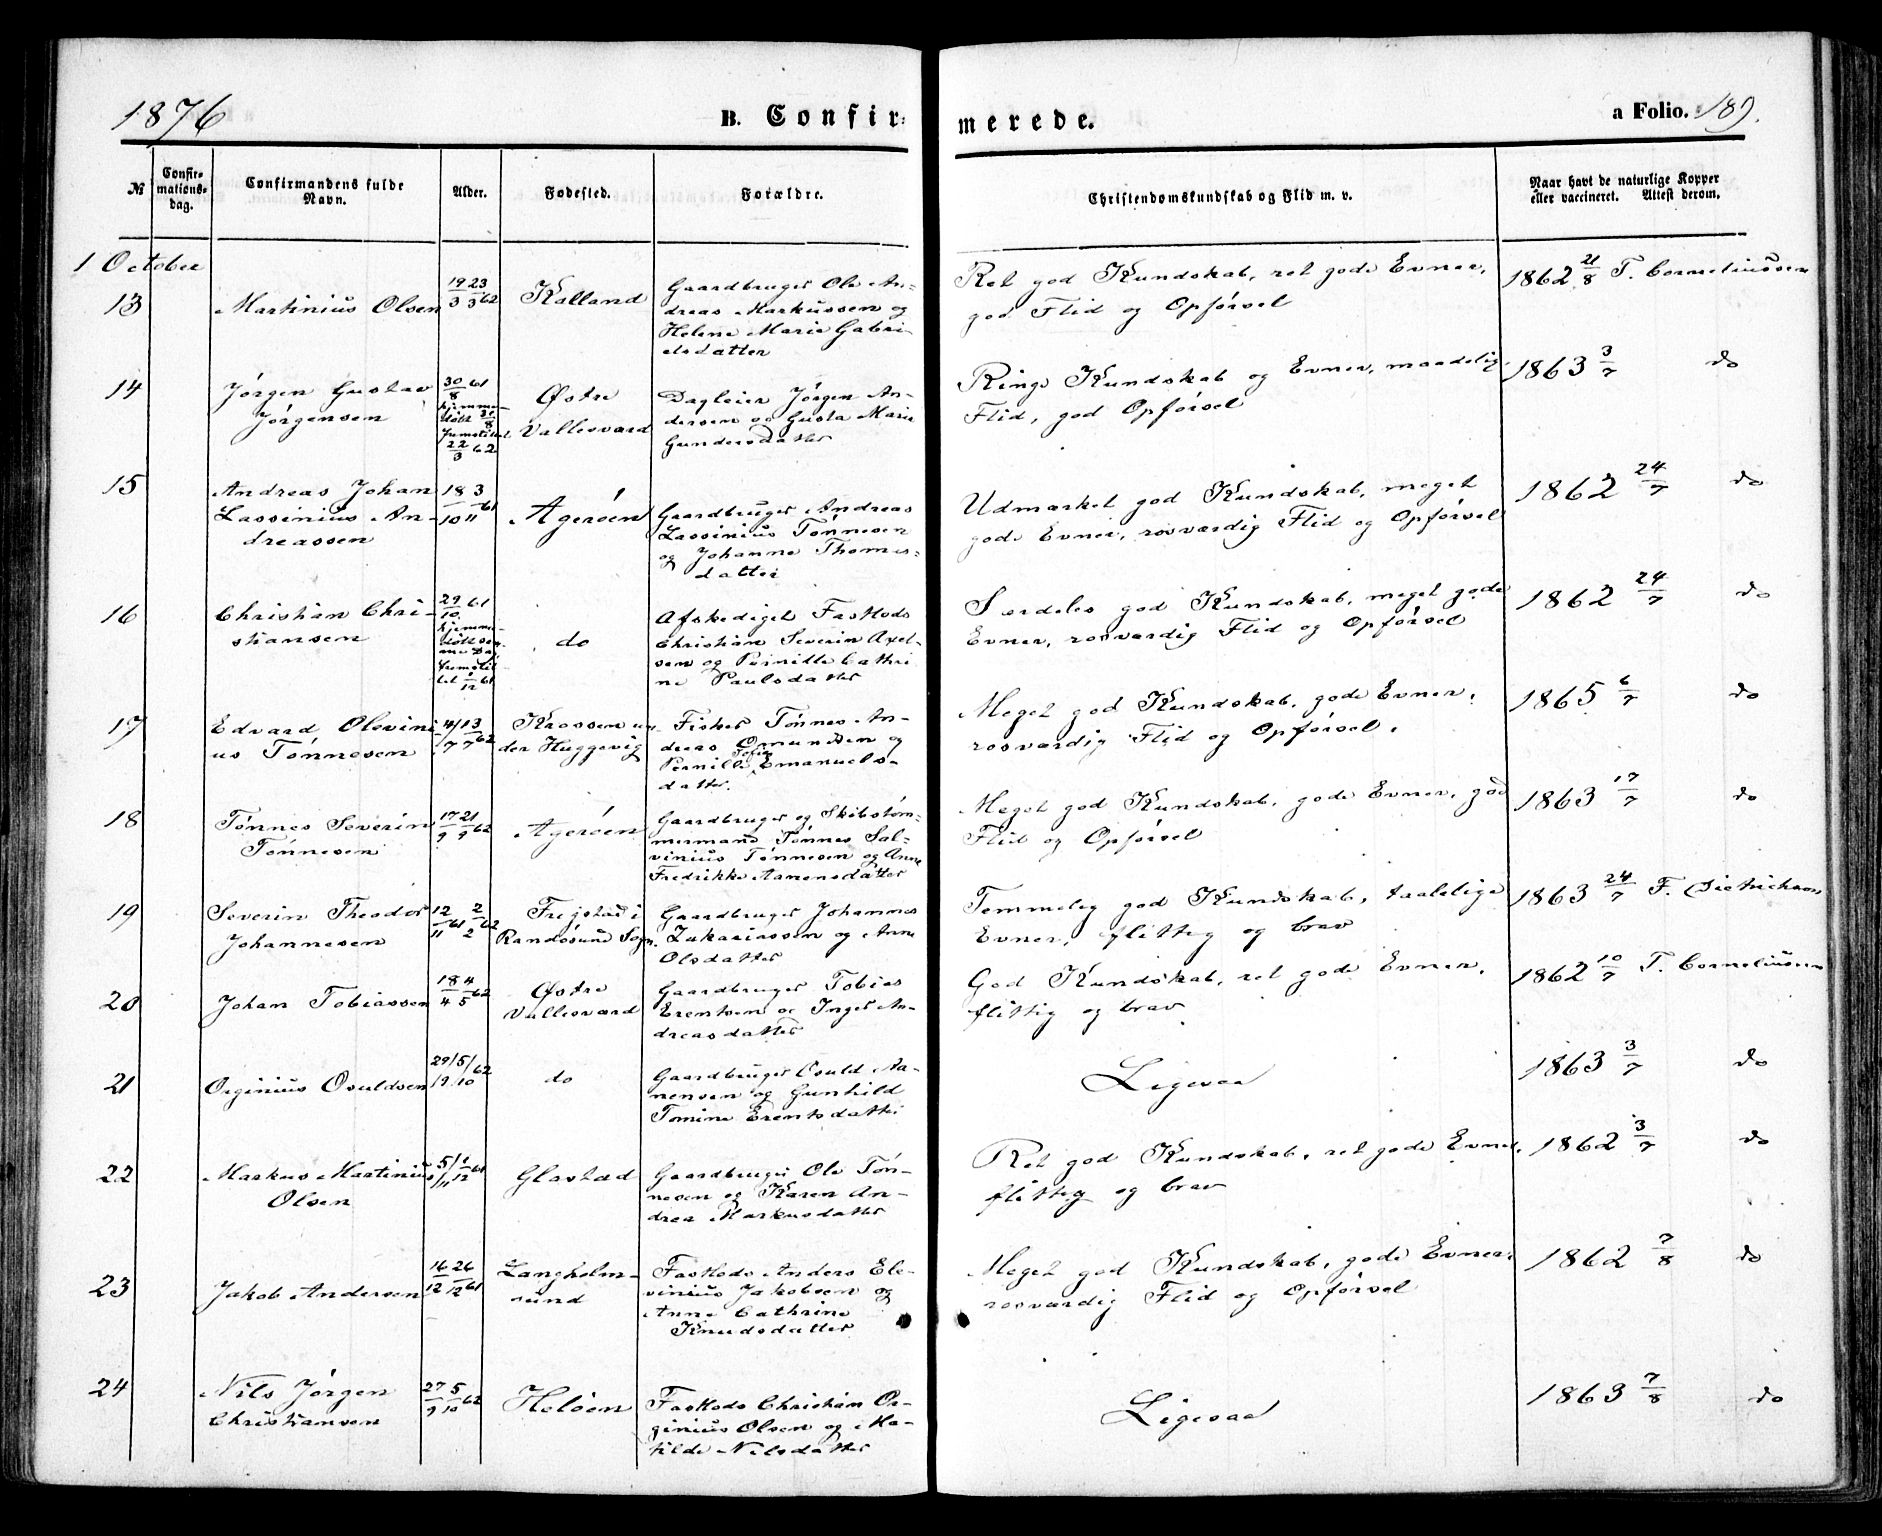 1876
B. Confir-
merede.
a Folio. 189.
№
Confir-
mations-
dag.
Confirmandens fulde
Navn.
Alder.
Fødested.
Forældre.
Christendomskundskab og Flid m. v.
Naar havt de naturlige Kopper
eller vaccineret. Attest derom.
1 October
13 Martinius Olsen 19/3 23/3 62 Kalland
Gaardbruger Ole An-
dreas Markussen og
Helene Marie Gabri-
elsdatter
Ret god Kundskab, ret gode Evner,
god Flid og Opførsel
1862 21/8 T. Corneliussen
14 Jørgen Gustav
Jørgensen
30/8 61
hjemme-
døbt 31/8
fremstillet
22/3 62
Østre
Vallesværd
Dagleier Jørgen An-
dersen og Gusta Marie
Gundersdatter
Ringe Kundskab og Evner, maadelig
Flid, god Opførsel
1863 3/7 do
15 Andreas Johan
Lassinius An-
dreassen
18/10 3/11 61
Agerøen
Gaardbruger Andreas
Lassinius Tønnesen
og Johanne Thomas-
datter
Udmærket god Kundskab, meget
gode Evner, rosværdig Flid og Opførsel
1862 24/7 do
16 Christian Chri-
stiansen
29/10 61
hjemme-
døbt sam-
me Dag,
fremstil-
let 1/12 61
do
Afskediget Fastlods
Christian Severin Axel-
sen og Pernille Cathri-
ne Paulsdatter
Særdeles god Kundskab, meget gode
Evner, rosværdig Flid og Opførsel
1862 24/7 do
17 Edvard Olevini-
us Tønnesen
4/7 13/7 62
Krossen un-
der Huggevig
Fisker Tønnes An-
dreas Omundsen og
Pernille Tofin Emanuels-
datter.
Meget god Kundskab, gode Evner,
rosværdig Flid og Opførsel.
1865 6/7 do
18 Tønnes Severin
Tønnesen
17/9 21/9 62
Agerøen
Gaardbruger og Skibstøm-
mermand Tønnes Sal-
vinius Tønnesen og Anne
Fredrikke Aanensdatter
Meget god Kundskab, gode Evner, god
Flid og Opførsel
1863 17/7 do
19 Severin Theodor
Johannesen
12/11 61 2/2 62
Frejstad i
Randøsund Sogn.
Gaardbruger Johannes
Zakariassen og Anne
Olsdatter
Temmelig god Kundskab, taalelige
Evner, flittig og brav
1863 24/7 F. Dietrichson
20 Johan Tobiassen
18/4 4/5 62
Østre
Vallesværd
Gaardbruger Tobias
Erentsen og Inger An-
dreasdatter
God Kundskab, ret gode Evner,
flittig og brav
1862 10/7 T. Corneliussen
21 Orginius Osuldsen
29/9 5/10 62
do
Gaardbruger Osuld Aa-
nensen og Gunhild
Tomine Erentsdatter
Ligesaa
1863 3/7 do
22 Markus Martinius
Olsen
5/11 1/12 61
Glastad
Gaardbruger Ole Tøn-
nesen og Karen An-
drea Markusdatter
Ret god Kundskab, ret gode Evner,
flittig og brav
1862 3/7 do
23 Jakob Andersen
16/12 26/12 61
Langholm-
sund
Fastlods Anders Ele-
vinius Jakobsen og
Anne Cathrine
Knudsdatter
Meget god Kundskab, gode Evner,
rosværdig Flid og Opførsel
1862 7/8 do
24 Nils Jørgen
Christiansen
27/9 5/10 62
Heløen
Fastlods Christian Or-
ginius Olsen og Ma-
tilde Nilsdatter
Ligesaa
1863 7/8 do